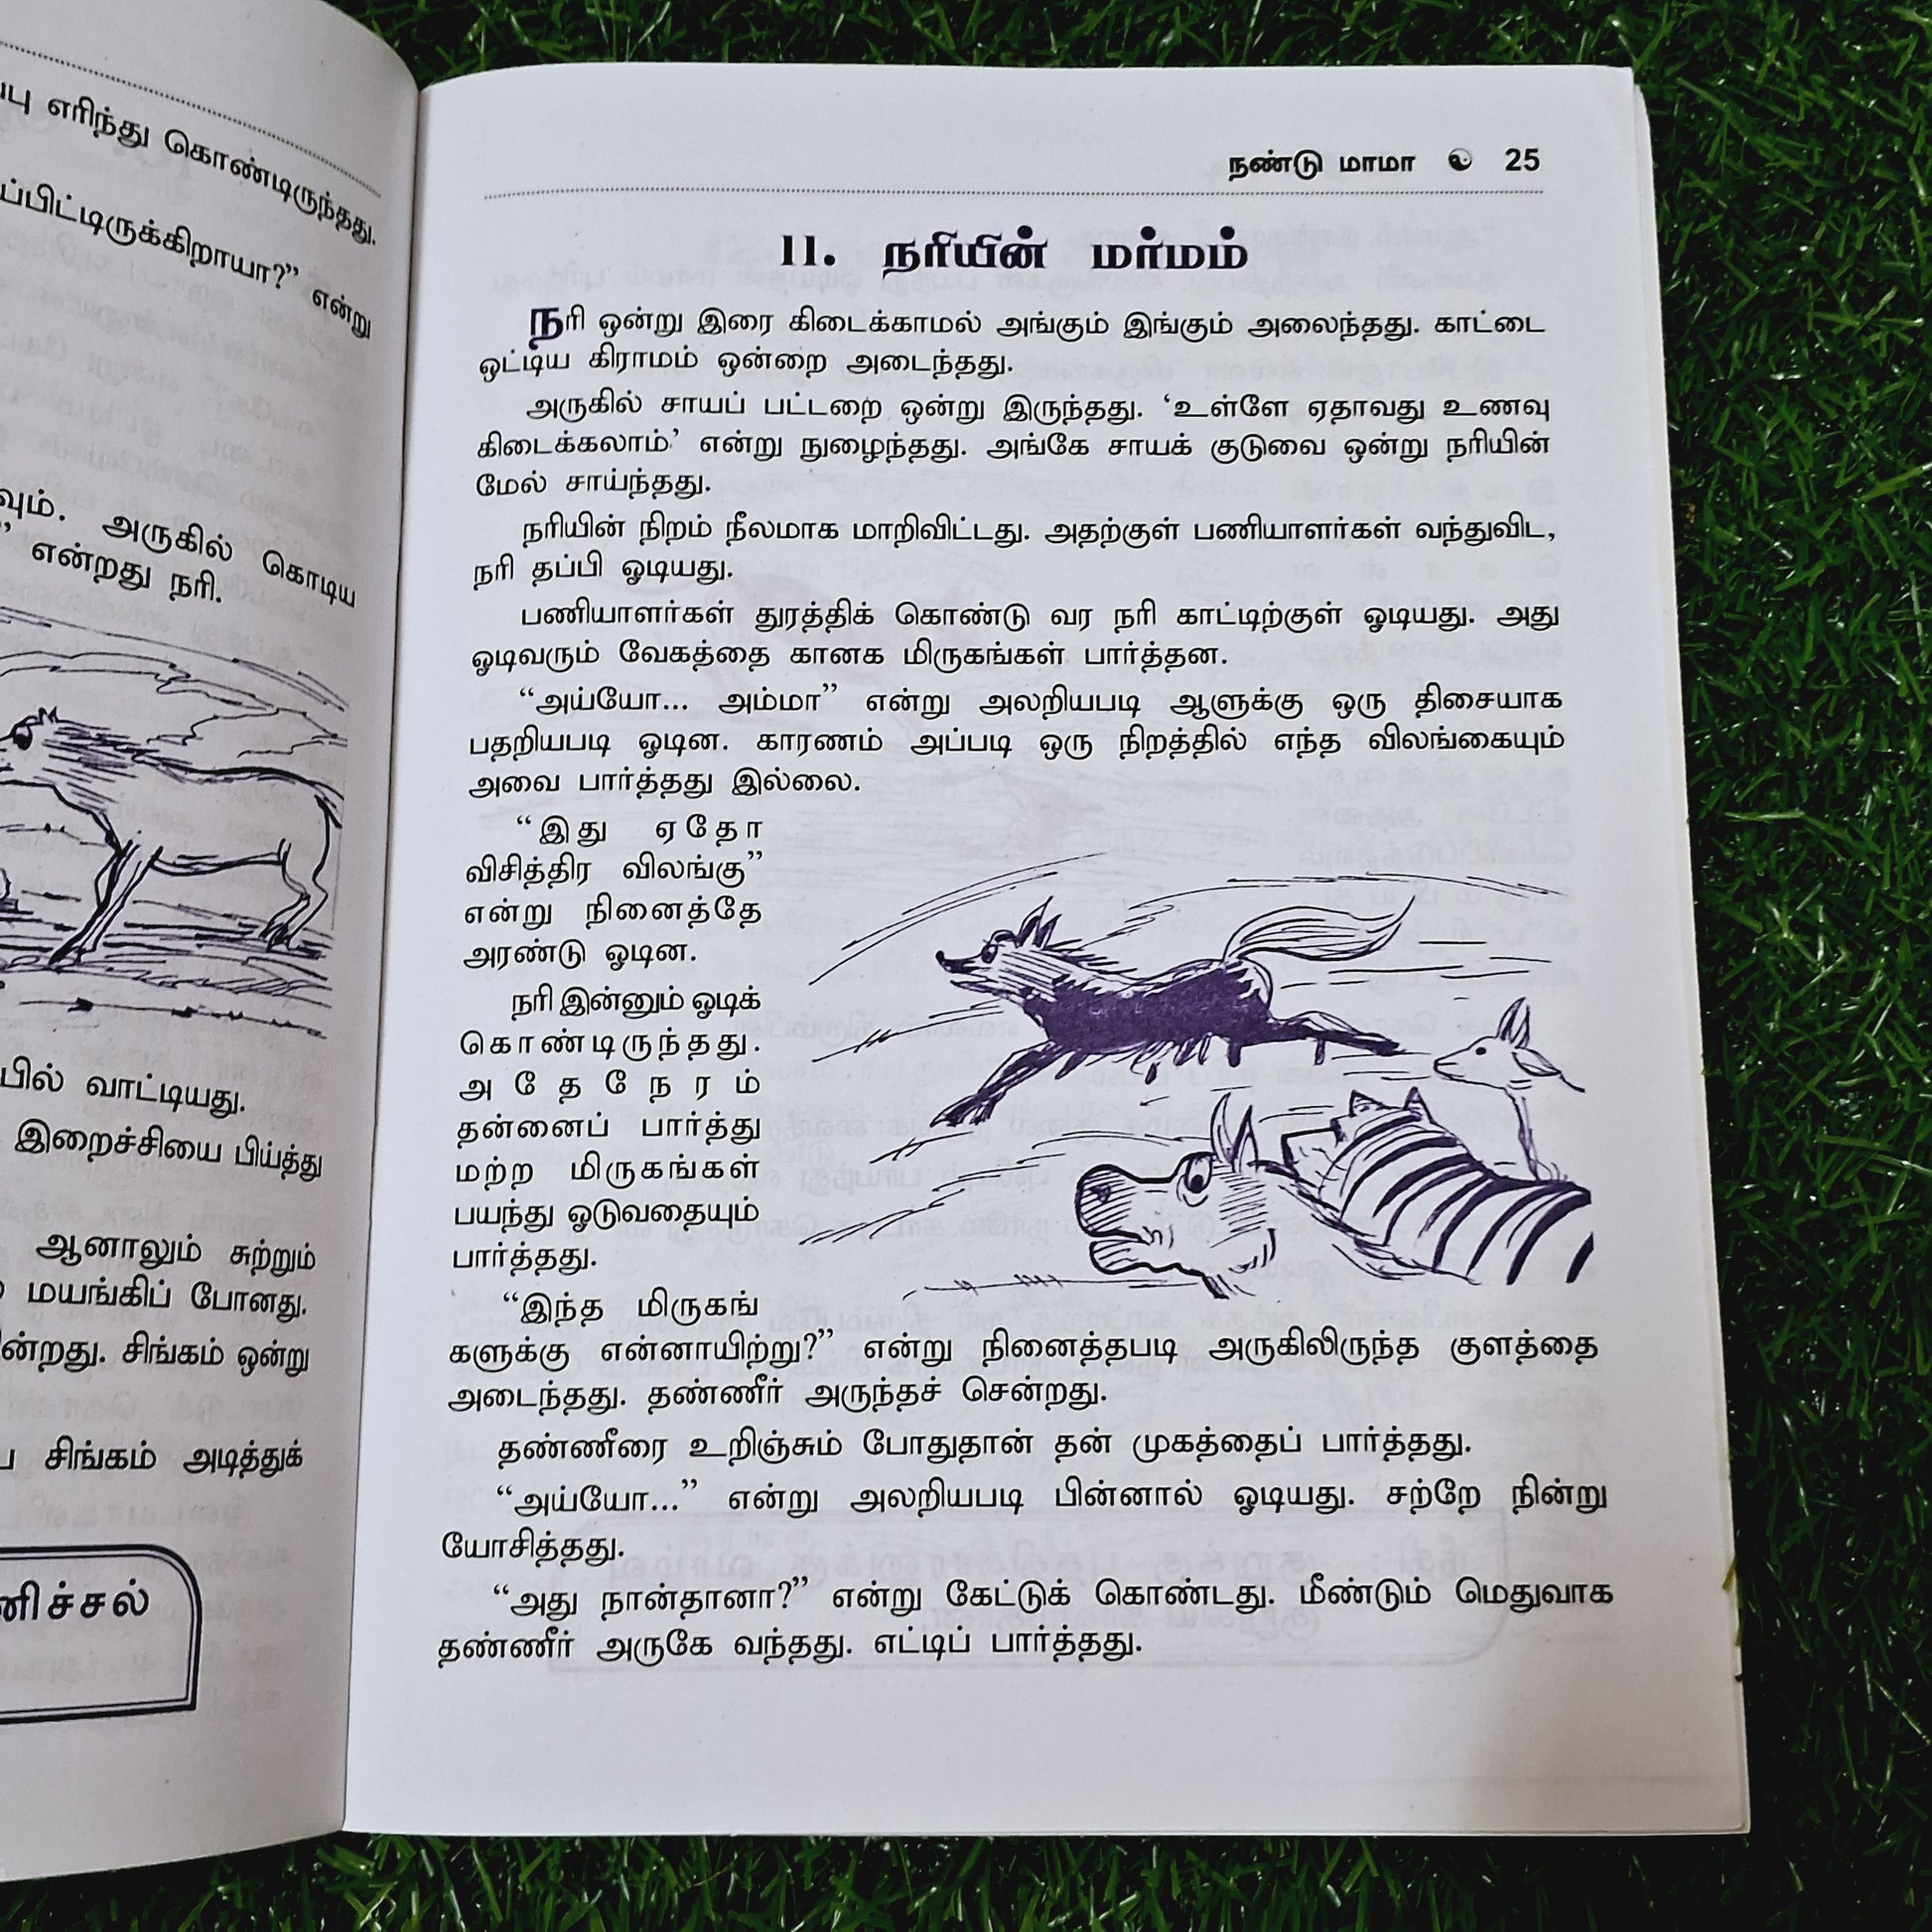 எரிந்து கொண்டிருந்தது.
என்று
அருகில் கொடிய
என்றது நரி.
வாட்டியது.
இறைச்சியை பிய்த்து
ஆனாலும் சுற்றும்
மயங்கிப் போனது.
சிங்கம் ஒன்று
சிங்கம் அடித்துக்
நண்டு மாமா 25
11. நரியின் மர்மம்
நரி ஒன்று இரை கிடைக்காமல் அங்கும் இங்கும் அலைந்தது. காட்டை
ஒட்டிய கிராமம் ஒன்றை அடைந்தது.
அருகில் சாயப் பட்டறை ஒன்று இருந்தது. ‘உள்ளே ஏதாவது உணவு
கிடைக்கலாம்’ என்று நுழைந்தது. அங்கே சாயக் குடுவை ஒன்று நரியின்
மேல் சாய்ந்தது.
நரியின் நிறம் நீலமாக மாறிவிட்டது. அதற்குள் பணியாளர்கள் வந்துவிட,
நரி தப்பி ஓடியது.
பணியாளர்கள் துரத்திக் கொண்டு வர நரி காட்டிற்குள் ஓடியது. அது
ஓடிவரும் வேகத்தை கானக மிருகங்கள் பார்த்தன.
“அய்யோ... அம்மா” என்று அலறியபடி ஆளுக்கு ஒரு திசையாக
பதறியபடி ஓடின. காரணம் அப்படி ஒரு நிறத்தில் எந்த விலங்கையும்
அவை பார்த்தது இல்லை.
“இது ஏதோ
விசித்திர விலங்கு”
என்று நினைத்தே
அரண்டு ஓடின.
நரி இன்னும் ஓடிக்
கொண்டிருந்தது.
அதேநேரம்
தன்னைப் பார்த்து
மற்ற மிருகங்கள்
பயந்து ஓடுவதையும்
பார்த்தது.
“இந்த மிருகங்
களுக்கு என்னாயிற்று?” என்று நினைத்தபடி அருகிலிருந்த குளத்தை
அடைந்தது. தண்ணீர் அருந்தச் சென்றது.
தண்ணீரை உறிஞ்சும் போதுதான் தன் முகத்தைப் பார்த்தது.
“அய்யோ...” என்று அலறியபடி பின்னால் ஓடியது. சற்றே நின்று
யோசித்தது.
“அது நான்தானா?” என்று கேட்டுக் கொண்டது. மீண்டும் மெதுவாக
தண்ணீர் அருகே வந்தது. எட்டிப் பார்த்தது.